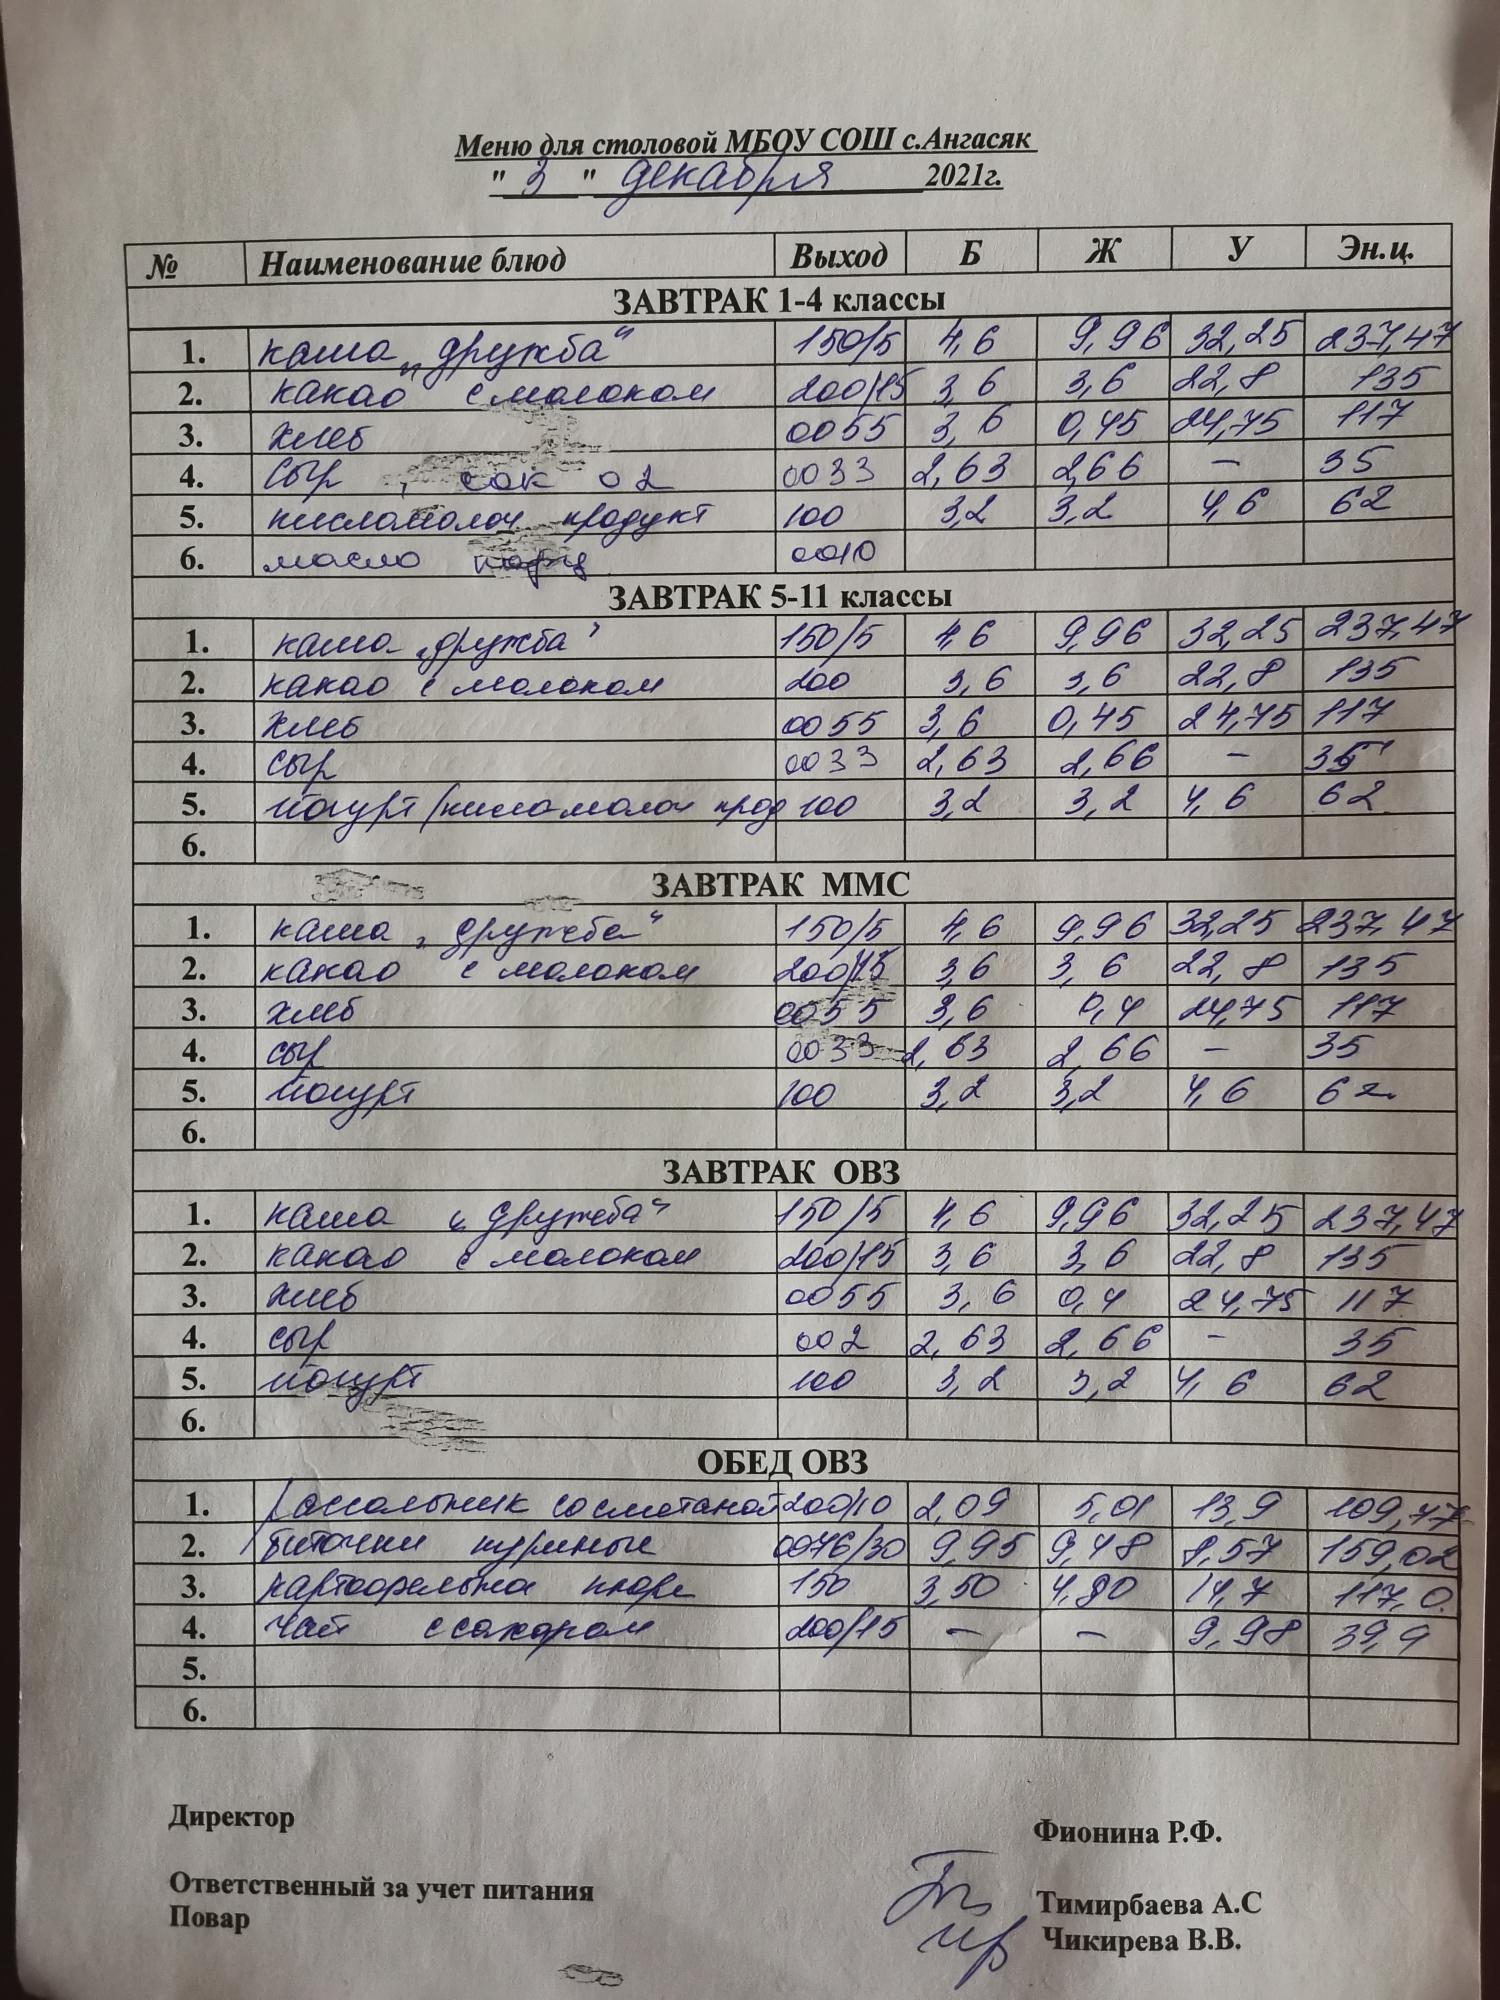 Меню для столовой МБОУ СОШ с.Ангасяк
"3" декабря 2021г.
№ Наименование блюд Выход Б Ж У Эн.ц.
ЗАВТРАК 1-4 классы
1. каша „дружба“ 150/5 4,6 9,96 32,25 237,47
2. какао с молоком 200/15 3,6 3,6 22,8 135
3. хлеб 0055 3,6 0,45 24,75 117
4. сыр , сок 02 0033 2,63 2,66 – 35
5. кисломолоч продукт 100 3,2 3,2 4,6 62
6. масло 0010
ЗАВТРАК 5-11 классы
1. каша „дружба“ 150/5 4,6 9,96 32,25 237,47
2. какао с молоком 200 3,6 3,6 22,8 135
3. хлеб 0055 3,6 0,45 24,75 117
4. сыр 0033 2,63 2,66 – 35
5. йогурт (кисломолоч прод 100 3,2 3,2 4,6 62
6.
ЗАВТРАК ММС
1. каша „дружба“ 150/5 4,6 9,96 32,25 237,47
2. какао с молоком 200/15 3,6 3,6 22,8 135
3. хлеб 0055 3,6 0,4 24,75 117
4. сыр 0033 2,63 2,66 – 35
5. йогурт 100 3,2 3,2 4,6 62
6.
ЗАВТРАК ОВЗ
1. каша „дружба“ 150/5 4,6 9,96 32,25 237,47
2. какао с молоком 200/15 3,6 3,6 22,8 135
3. хлеб 0055 3,6 0,4 24,75 117
4. сыр 002 2,63 2,66 – 35
5. йогурт 100 3,2 3,2 4,6 62
6.
ОБЕД ОВЗ
1. Рассольник со сметаной 200/10 2,09 5,01 13,9 109,47
2. биточки куриные 0076/30 9,95 9,48 8,57 159,02
3. картофельное пюре 150 3,50 4,80 14,7 117,0
4. Чай с сахаром 200/15 – – 9,98 39,9
5.
6.
Директор Фионина Р.Ф.
Ответственный за учет питания Тимирбаева А.С
Повар Чикирева В.В.